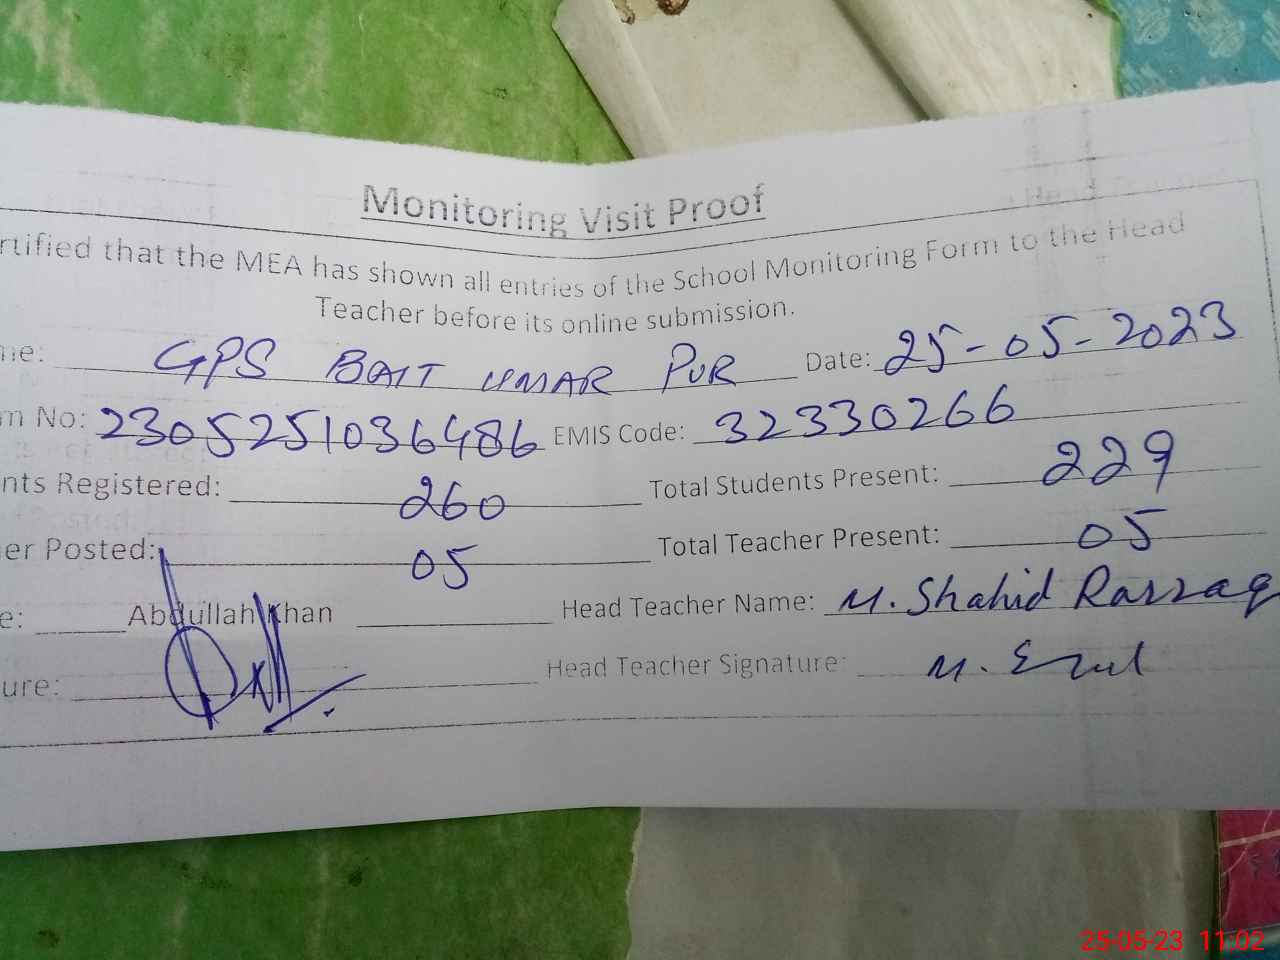 Monitoring Visit Proof
rtified that the MEA has shown all entries of the School Monitoring Form to the Head
Teacher before its online submission.
me: GPS BAIT UMAR PUR Date: 25-05-2023
m No: 2305251036486 EMIS Code: 32330266
nts Registered: 260 Total Students Present: 229
er Posted: 05 Total Teacher Present: 05
e: Abdullah Khan Head Teacher Name: M. Shahid Razzaq
ure: Head Teacher Signature: M.
25-05-23 11:02